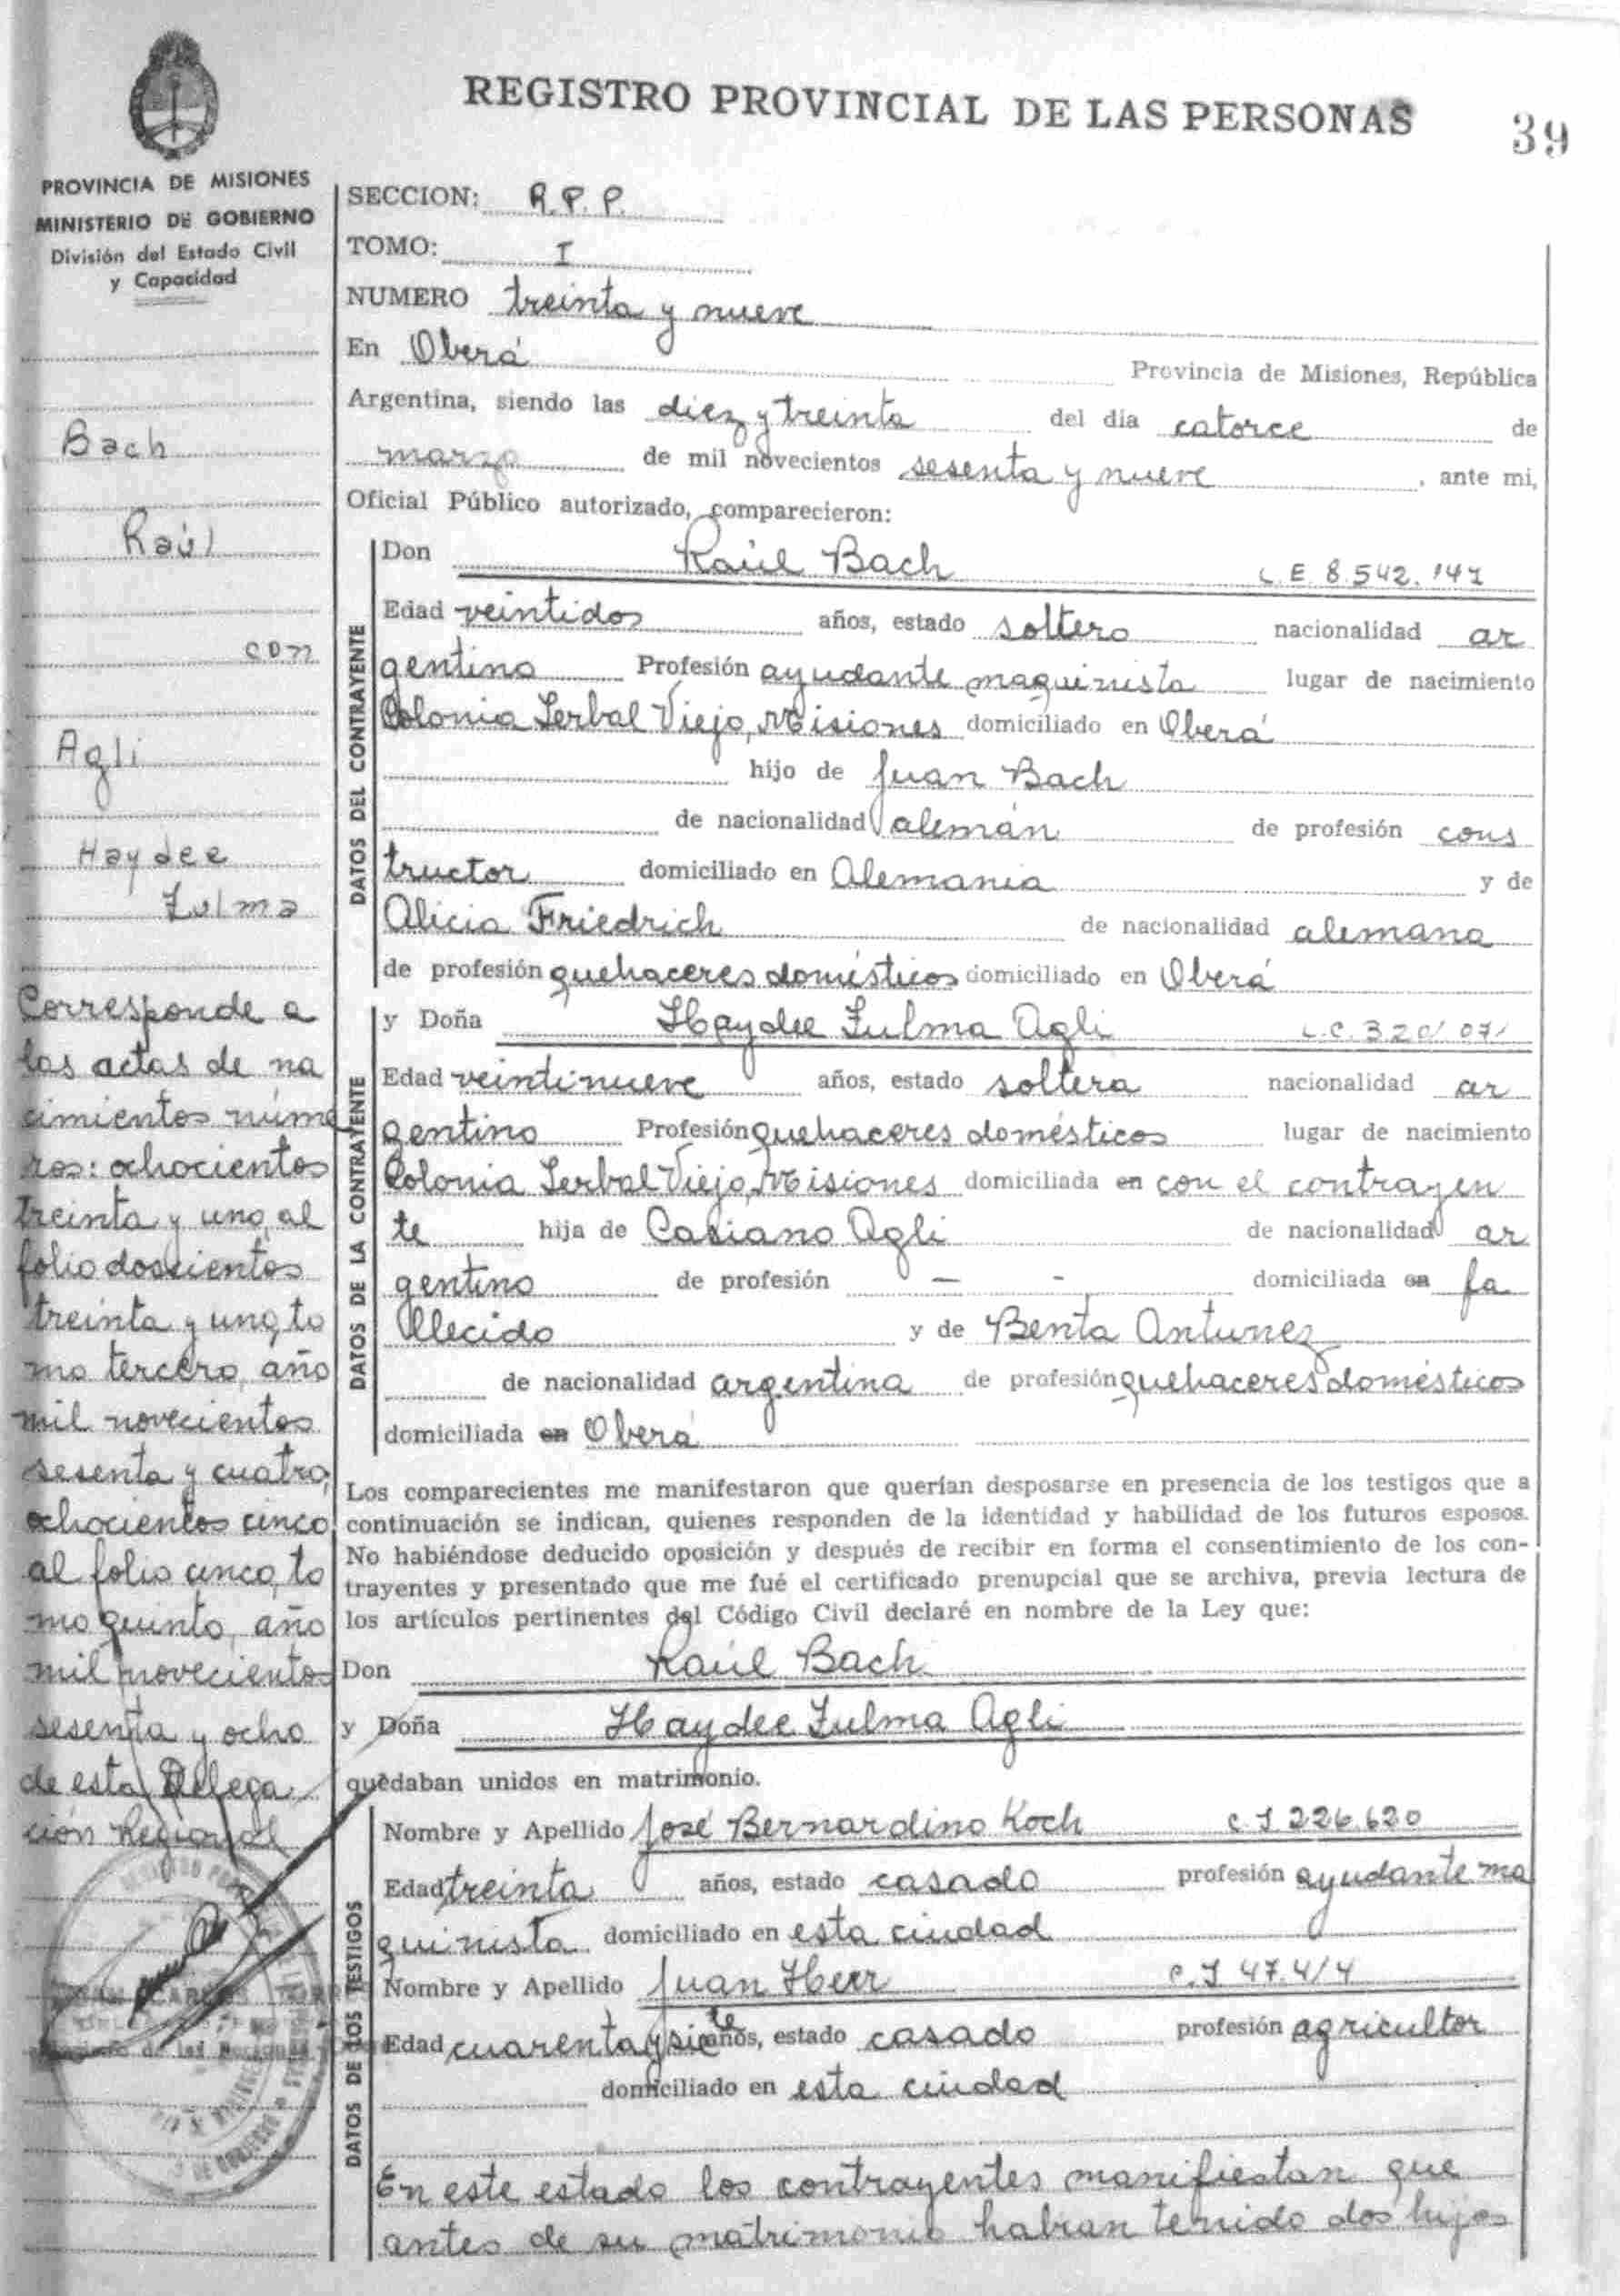 REGISTRO PROVINCIAL DE LAS PERSONAS
39
PROVINCIA DE MISIONES
MINISTERIO DE GOBIERNO
División del Estado Civil
y Capacidad
Bach
Raúl
con
Agli
Haydee
Zulma
Corresponde a
las actas de na
cimientos núme
ros: ochocientos
treinta y uno, al
folio doscientos
treinta y uno, to
mo tercero, año
mil novecientos
sesenta y cuatro,
ochocientos cinco
al folio cinco, to
mo quinto, año
mil novecientos
sesenta y ocho
de esta Delega
ción Regional
SECCION: R.P.P.
TOMO: I
NUMERO treinta y nueve
En Oberá Provincia de Misiones, República
Argentina, siendo las diez y treinta del día catorce de
marzo de mil novecientos sesenta y nueve, ante mi,
Oficial Público autorizado, comparecieron:
DATOS DEL CONTRAYENTE
Don Raúl Bach L.E. 8.542.147
Edad veintidos años, estado soltero nacionalidad ar
gentino Profesión ayudante maquinista lugar de nacimiento
Colonia Yerbal Viejo, Misiones domiciliado en Oberá
hijo de Juan Bach
de nacionalidad alemán de profesión cons
tructor domiciliado en Alemania y de
Alicia Friedrich de nacionalidad alemana
de profesión quehaceres domésticos domiciliado en Oberá
DATOS DE LA CONTRAYENTE
y Doña Haydee Zulma Agli L.C.
Edad veintinueve años, estado soltera nacionalidad ar
gentino Profesión quehaceres domésticos lugar de nacimiento
Colonia Yerbal Viejo, Misiones domiciliada en con el contrayen
te hija de Casiano Agli de nacionalidad ar
gentino de profesión - - domiciliada en fa
llecido y de Benta Antunez
de nacionalidad argentina de profesión quehaceres domésticos
domiciliada en Oberá
Los comparecientes me manifestaron que querían desposarse en presencia de los testigos que a
continuación se indican, quienes responden de la identidad y habilidad de los futuros esposos.
No habiéndose deducido oposición y después de recibir en forma el consentimiento de los con-
trayentes y presentado que me fué el certificado prenupcial que se archiva, previa lectura de
los artículos pertinentes del Código Civil declaré en nombre de la Ley que:
Don Raúl Bach
y Doña Haydee Zulma Agli
quedaban unidos en matrimonio.
DATOS DE LOS TESTIGOS
Nombre y Apellido José Bernardino Koch C.I 226.620
Edad treinta años, estado casado profesión ayudante ma
quinista domiciliado en esta ciudad
Nombre y Apellido Juan Herr C.I 47.414
Edad cuarenta y siete años, estado casado profesión agricultor
domiciliado en esta ciudad
En este estado los contrayentes manifiestan que
antes de su matrimonio habian tenido dos hijos